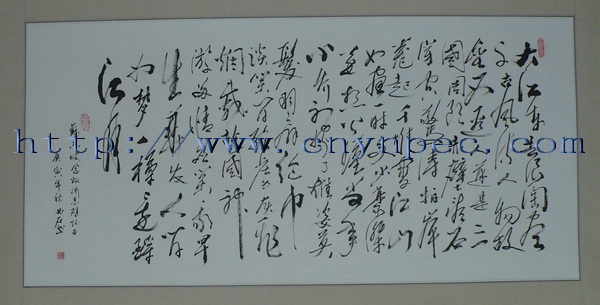 大江東去浪淘盡
千古風流人物故
壘西邊人道是三
國周郎赤壁亂石
崩雲驚濤拍岸
卷起千堆雪江山
如畫一時多少豪傑
遙想公瑾當年
小喬初嫁了雄姿英
發羽扇綸巾
談笑間強虜灰飛
煙滅故國神
游多情應笑我早
生華髮人間
如夢一樽還酹
江月
蘇軾念奴嬌赤壁懷古
庚寅年秋
http://www.cnynpec.com